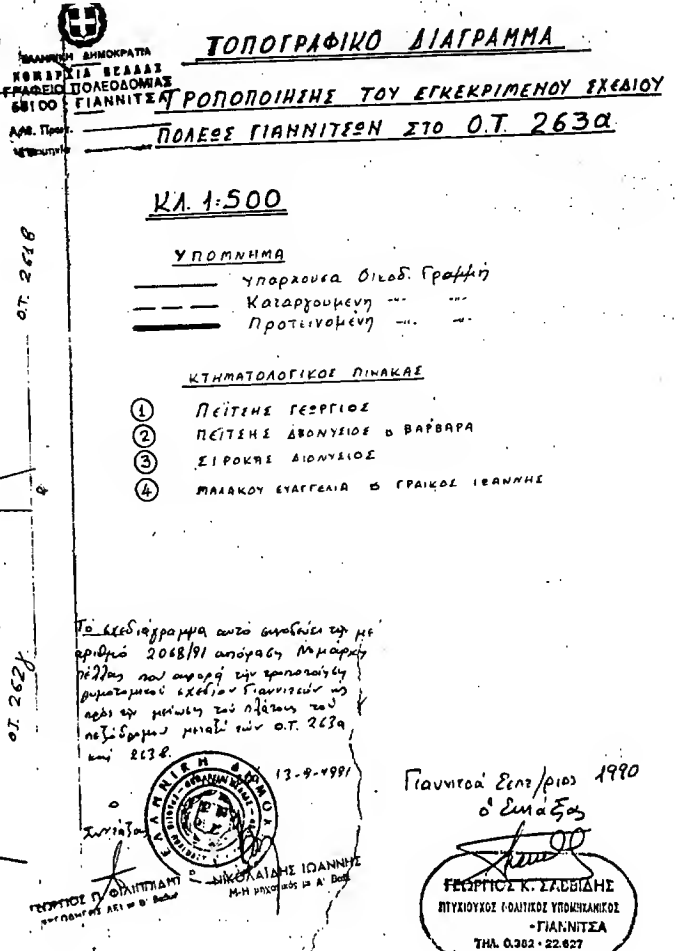 ΕΛΛΗΝΙΚΗ ΔΗΜΟΚΡΑΤΙΑ
ΝΟΜΑΡΧΙΑ ΠΕΛΛΑΣ
ΓΡΑΦΕΙΟ ΠΟΛΕΟΔΟΜΙΑΣ
58100 ΓΙΑΝΝΙΤΣΑ
Αριθ. Πρωτ.
ΤΟΠΟΓΡΑΦΙΚΟ ΔΙΑΓΡΑΜΜΑ
ΤΡΟΠΟΠΟΙΗΣΗΣ ΤΟΥ ΕΓΚΕΚΡΙΜΕΝΟΥ ΣΧΕΔΙΟΥ
ΠΟΛΕΩΣ ΓΙΑΝΝΙΤΣΩΝ ΣΤΟ Ο.Τ. 263α
ΚΛ. 1:500
ΥΠΟΜΝΗΜΑ
Υπαρχουσα Οικοδ. Γραμμή
Καταργουμένη -"- -"-
Προτεινομένη -"- -"-
ΚΤΗΜΑΤΟΛΟΓΙΚΟΣ ΠΙΝΑΚΑΣ
1 ΠΕΪΤΣΗΣ ΓΕΩΡΓΙΟΣ
2 ΠΕΪΤΣΗΣ ΔΙΟΝΥΣΙΟΣ & ΒΑΡΒΑΡΑ
3 ΣΙΡΟΚΑΣ ΔΙΟΝΥΣΙΟΣ
4 ΜΑΛΑΚΟΥ ΕΥΑΓΓΕΛΙΑ & ΓΡΑΙΚΟΣ ΙΩΑΝΝΗΣ
Ο.Τ. 261β
Ο.Τ. 262γ
Το σχεδιάγραμμα αυτό συνοδεύει την με
αριθμό 2068/91 απόφαση Νομάρχη
Πέλλας που αφορά την τροποποίηση
ρυμοτομικού σχεδίου Γιαννιτσών ως
προς την μείωση του πλάτους του
πεζόδρομου μεταξύ των Ο.Τ. 263α
και 263β.
13-9-1991
ο
Συντάξας
ΕΛΛΗΝΙΚΗ ΔΗΜΟΚΡ
ΓΕΩΡΓΙΟΣ Π. ΦΙΛΙΠΠΙΔΗΣ
ΝΙΚΟΛΑΪΔΗΣ ΙΩΑΝΝΗΣ
Μ-Η μηχανικός με Α' Βαθ.
Γιαννιτσά Σεπτ/ριος 1990
ο Συντάξας
ΓΕΩΡΓΙΟΣ Κ. ΣΑΒΒΙΔΗΣ
ΠΤΥΧΙΟΥΧΟΣ ΠΟΛΙΤΙΚΟΣ ΥΠΟΜΗΧΑΝΙΚΟΣ
ΓΙΑΝΝΙΤΣΑ
ΤΗΛ. 0.382 - 22.627